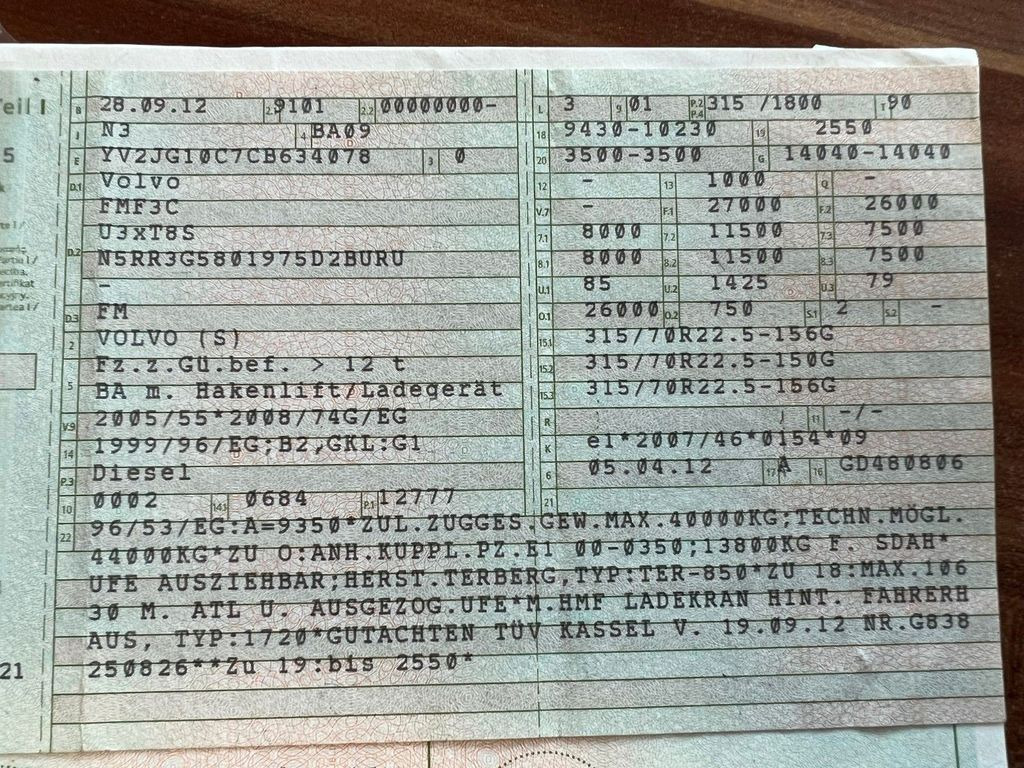 Teil I
B 28.09.12 2.1 9101 2.2 00000000-
L 3 9 01 P.2 P.4 315 /1800 T 90
J N3 4 BA09
18 9430-10230 19 2550
5
E YV2JG10C7CB634078 3 0
20 3500-3500 G 14040-14040
D.1 Volvo
12 - 13 1000 Q -
FMF3C
V.7 - F.1 27000 F.2 26000
D.2 U3xT8S
7.1 8000 7.2 11500 7.3 7500
N5RR3G5801975D2BURU
8.1 8000 8.2 11500 8.3 7500
-
U.1 85 U.2 1425 U.3 79
D.3 FM
O.1 26000 O.2 750 S.1 2 S.2 -
2 VOLVO (S)
15.1 315/70R22.5-156G
5 Fz.z.Gü.bef. > 12 t
15.2 315/70R22.5-150G
BA m. Hakenlift/Ladegerät
15.3 315/70R22.5-156G
V.9 2005/55*2008/74G/EG
R 11 -/-
14 1999/96/EG;B2,GKL:G1
K e1*2007/46*0154*09
P.3 Diesel
6 05.04.12 17 A 16 GD480806
10 0002 14.1 0684 P.1 12777
21
22 96/53/EG:A=9350*ZUL.ZUGGES.GEW.MAX.40000KG;TECHN.MÖGL.
44000KG*ZU O:ANH.KUPPL.PZ.E1 00-0350;13800KG F. SDAH*
UFE AUSZIEHBAR;HERST.TERBERG,TYP:TER-850*ZU 18:MAX.106
30 M. ATL U. AUSGEZOG.UFE*M.HMF LADEKRAN HINT. FAHRERH
AUS, TYP:1720*GUTACHTEN TÜV KASSEL V. 19.09.12 NR.G838
250826**Zu 19:bis 2550*
21